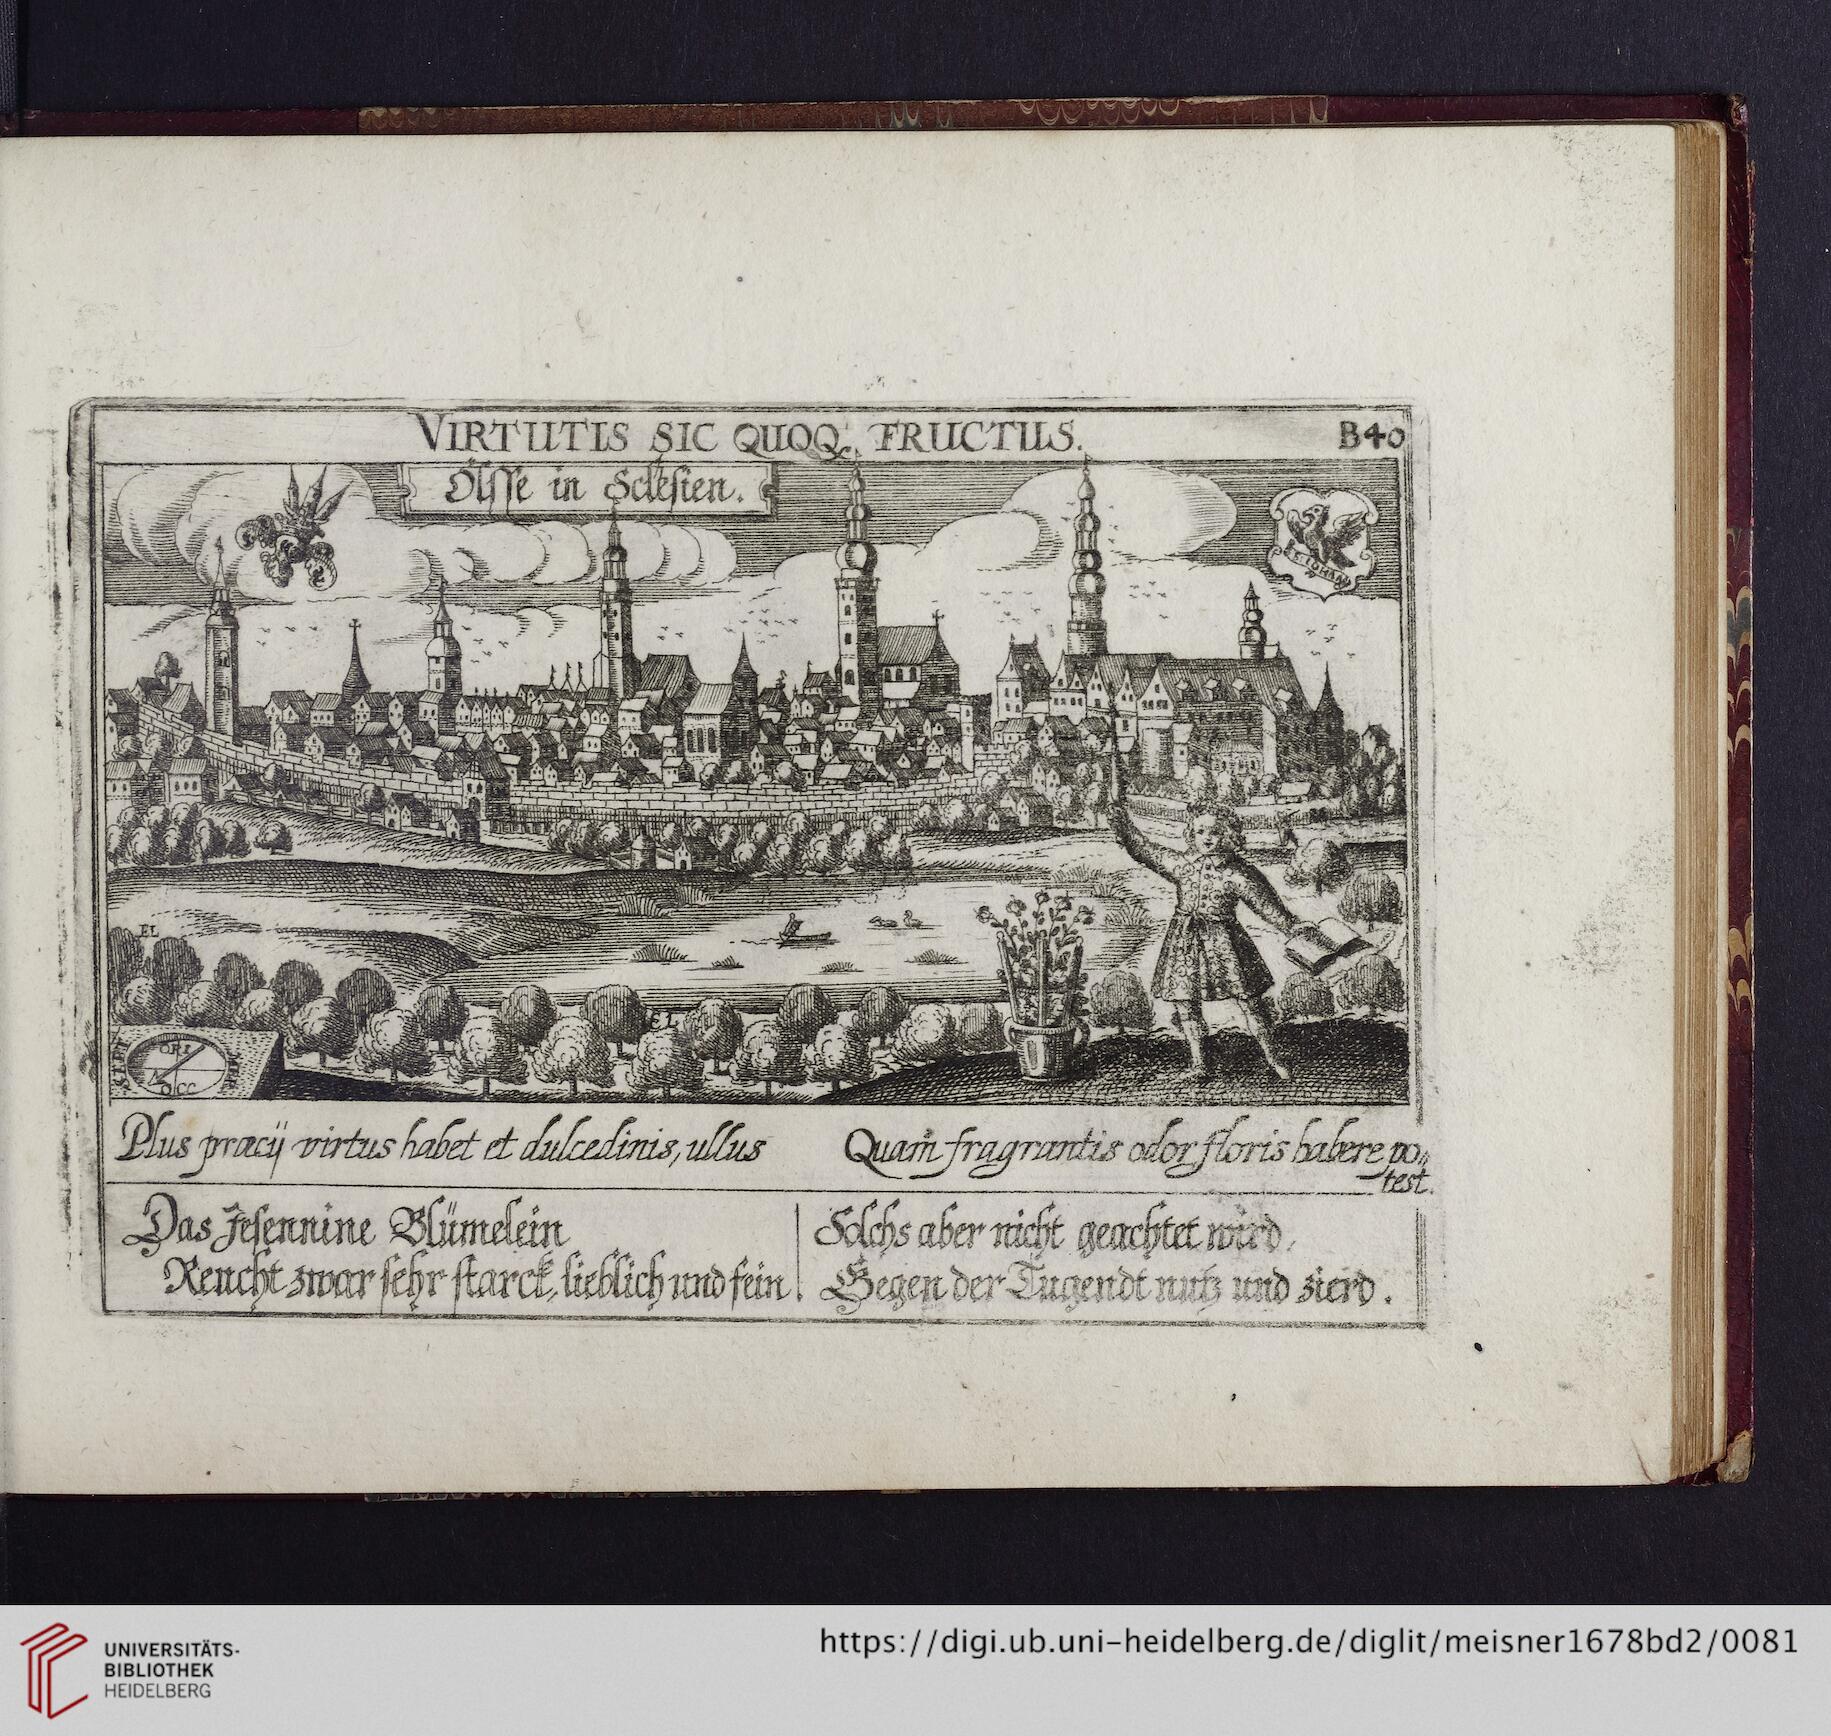 VIRTUTIS SIC QUOQ. FRUCTUS.
B40
Ölsse in Schlesien.
S. IOHAN
EL
EL
SEPT
ORI
MER
OCC
Plus præcij virtus habet et dulcedinis, ullus
Quam fragrantis odor floris habere po„
test.
Das Jesennine Blümelein
Reucht zwar sehr starck, lieblich und fein
Solchs aber nicht geachtet wird,
Gegen der Tugendt nutz und zierd.
UNIVERSITÄTS-
BIBLIOTHEK
HEIDELBERG
https://digi.ub.uni-heidelberg.de/diglit/meisner1678bd2/0081